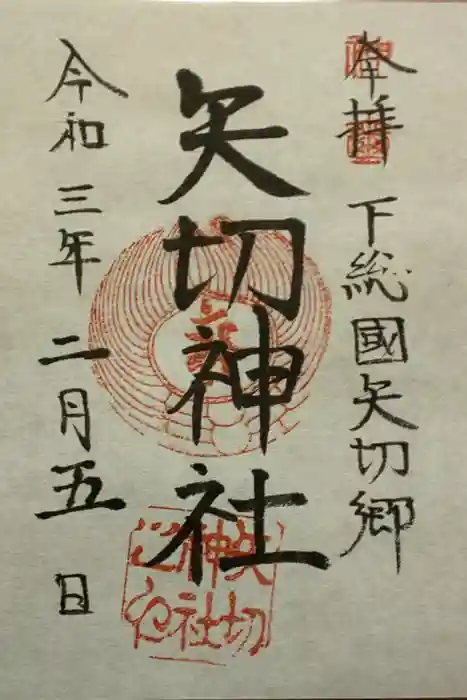 奉拝
下総國矢切郷
矢切神社
令和三年二月五日
矢切
神社
之印